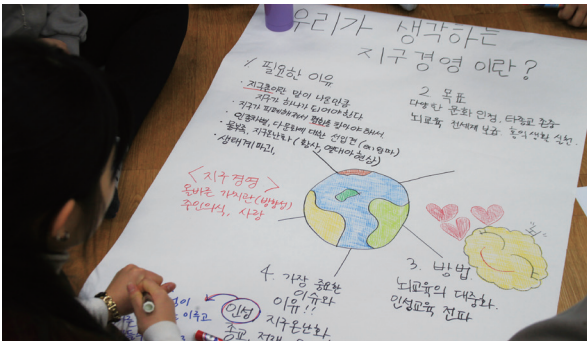 우리가 생각하는
지구경영이란?
1. 필요한 이유
· 지구촌이란 말이 나온만큼
지구가 하나가 되어야 한다
· 지구가 피폐해져서 평화를 되찾아야 해서
· 인종차별, 다문화에 대한 선입견
· 물부족, 지구온난화 (황사, 열대야현상)
· 생태계 파괴,
2. 목표
다양한 문화 인정, 타종교 존중
뇌교육 전세계 보급 홍익생활 실천.
<지구경영>
올바른 가치관(방향성)
주인의식, 사랑
3. 방법
뇌교육의 대중화.
인성교육 전파
4. 가장 중요한
이슈와
이유!!
인성 지구온난화,
종교,